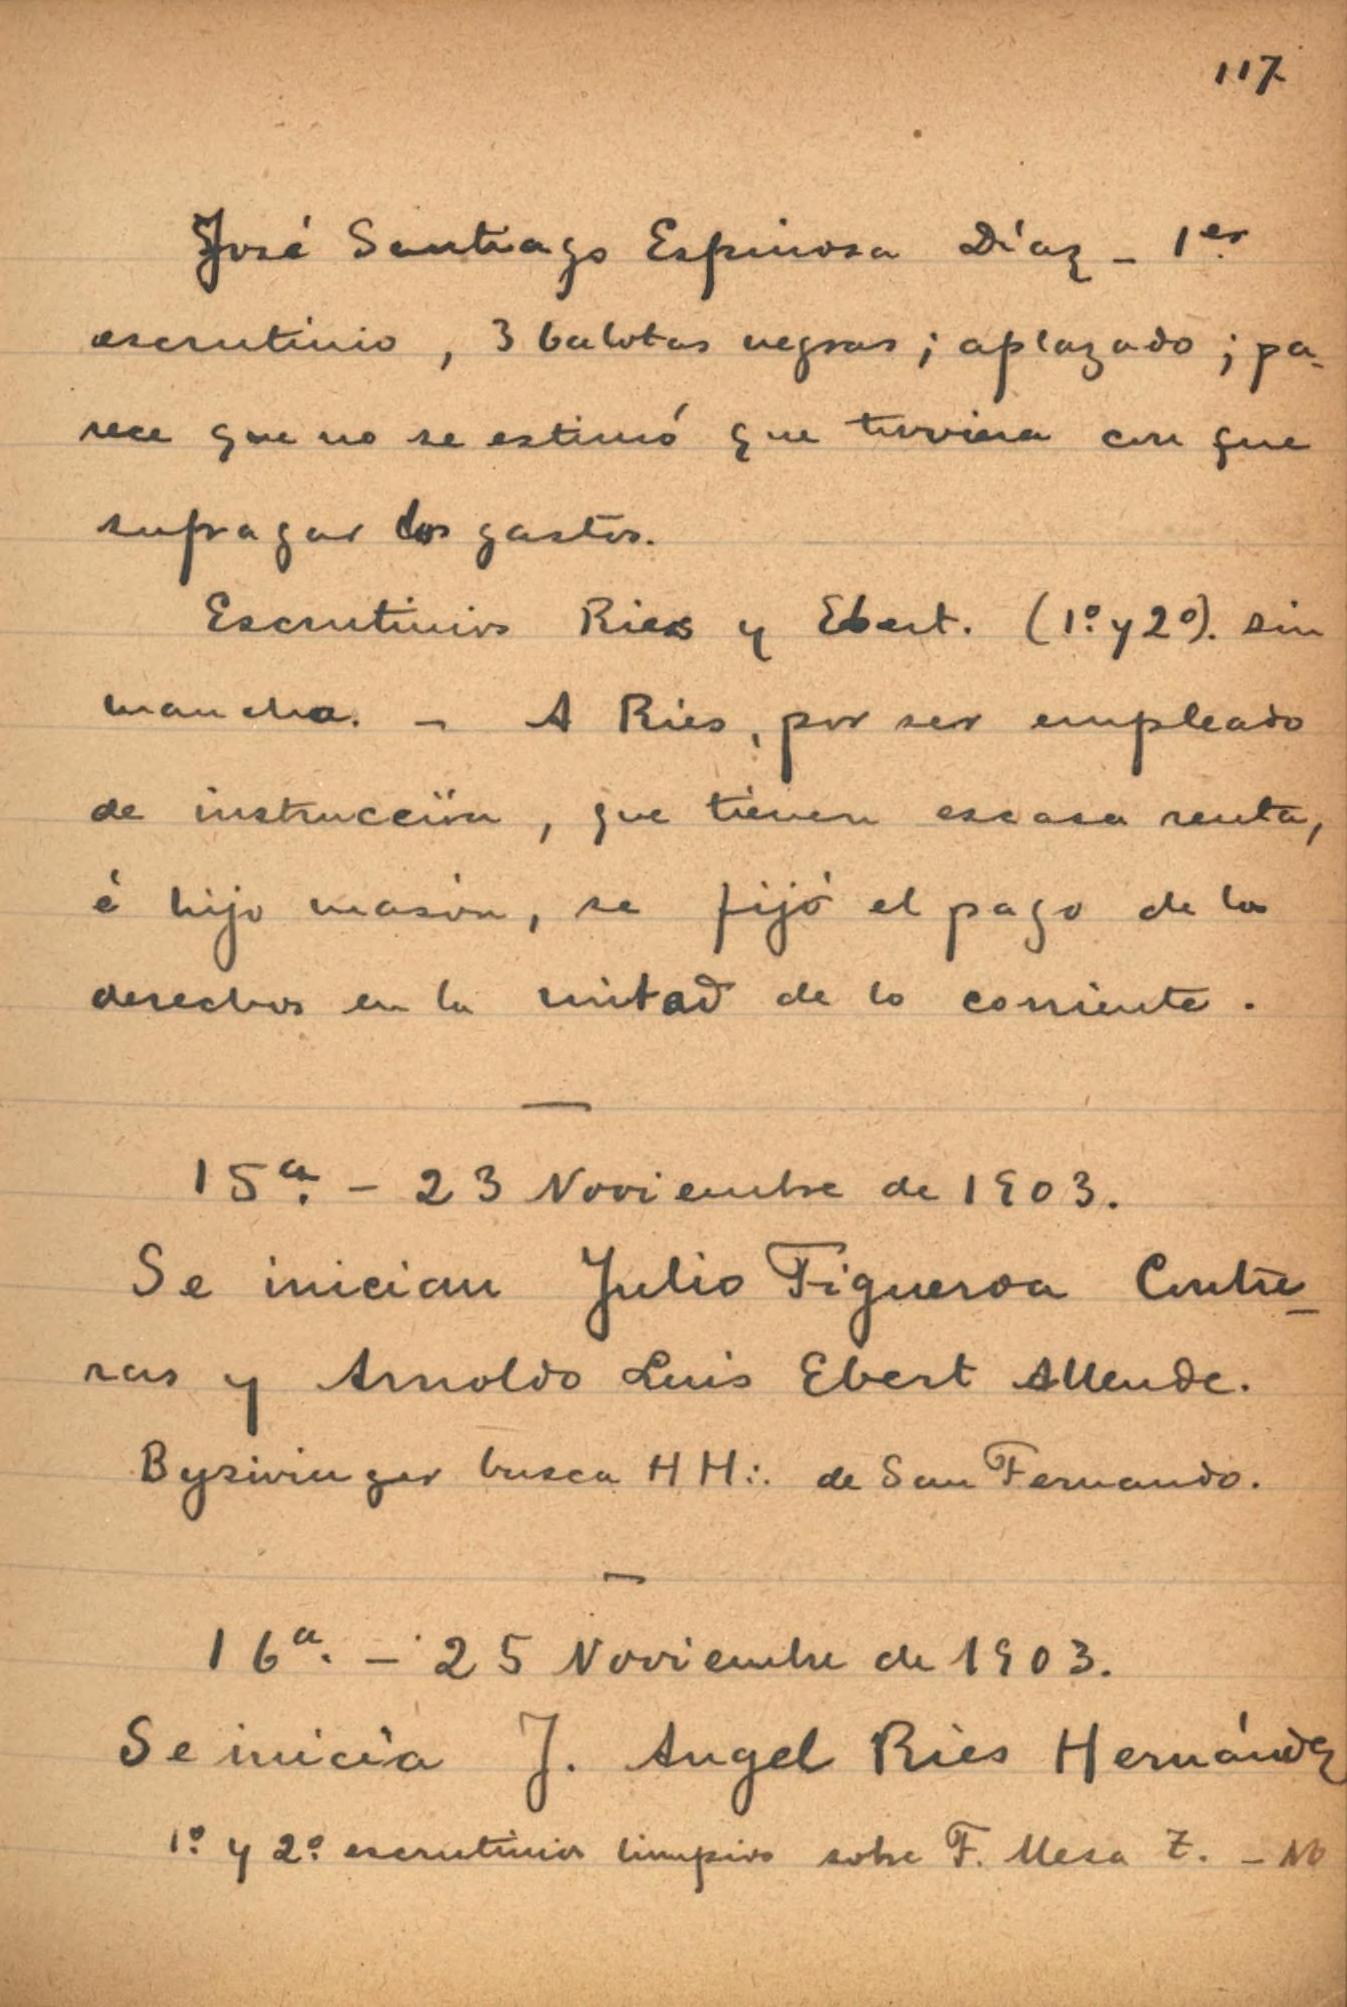 117
José Santiago Espinosa Díaz - 1er
escrutinio, 3 balotas negras; aplazado; pa-
rece que no se estimó que tuviera con que
sufragar los gastos.
Escrutinios Ries y Ebert. (1º y 2º). sin
mancha. - A Ries, por ser empleado
de instrucción, que tienen escasa renta,
é hijo masón, se fijó el pago de los
derechos en la mitad de lo corriente.
15a. - 23 Noviembre de 1903.
Se inician Julio Figueroa Contre-
ras y Arnoldo Luis Ebert Allende.
Bysivinger busca HH∴ de San Fernando.
16a. - 25 Noviembre de 1903.
Se inicia J. Angel Ries Hernández
1º y 2º escrutinios limpios sobre F. Mesa Z. -